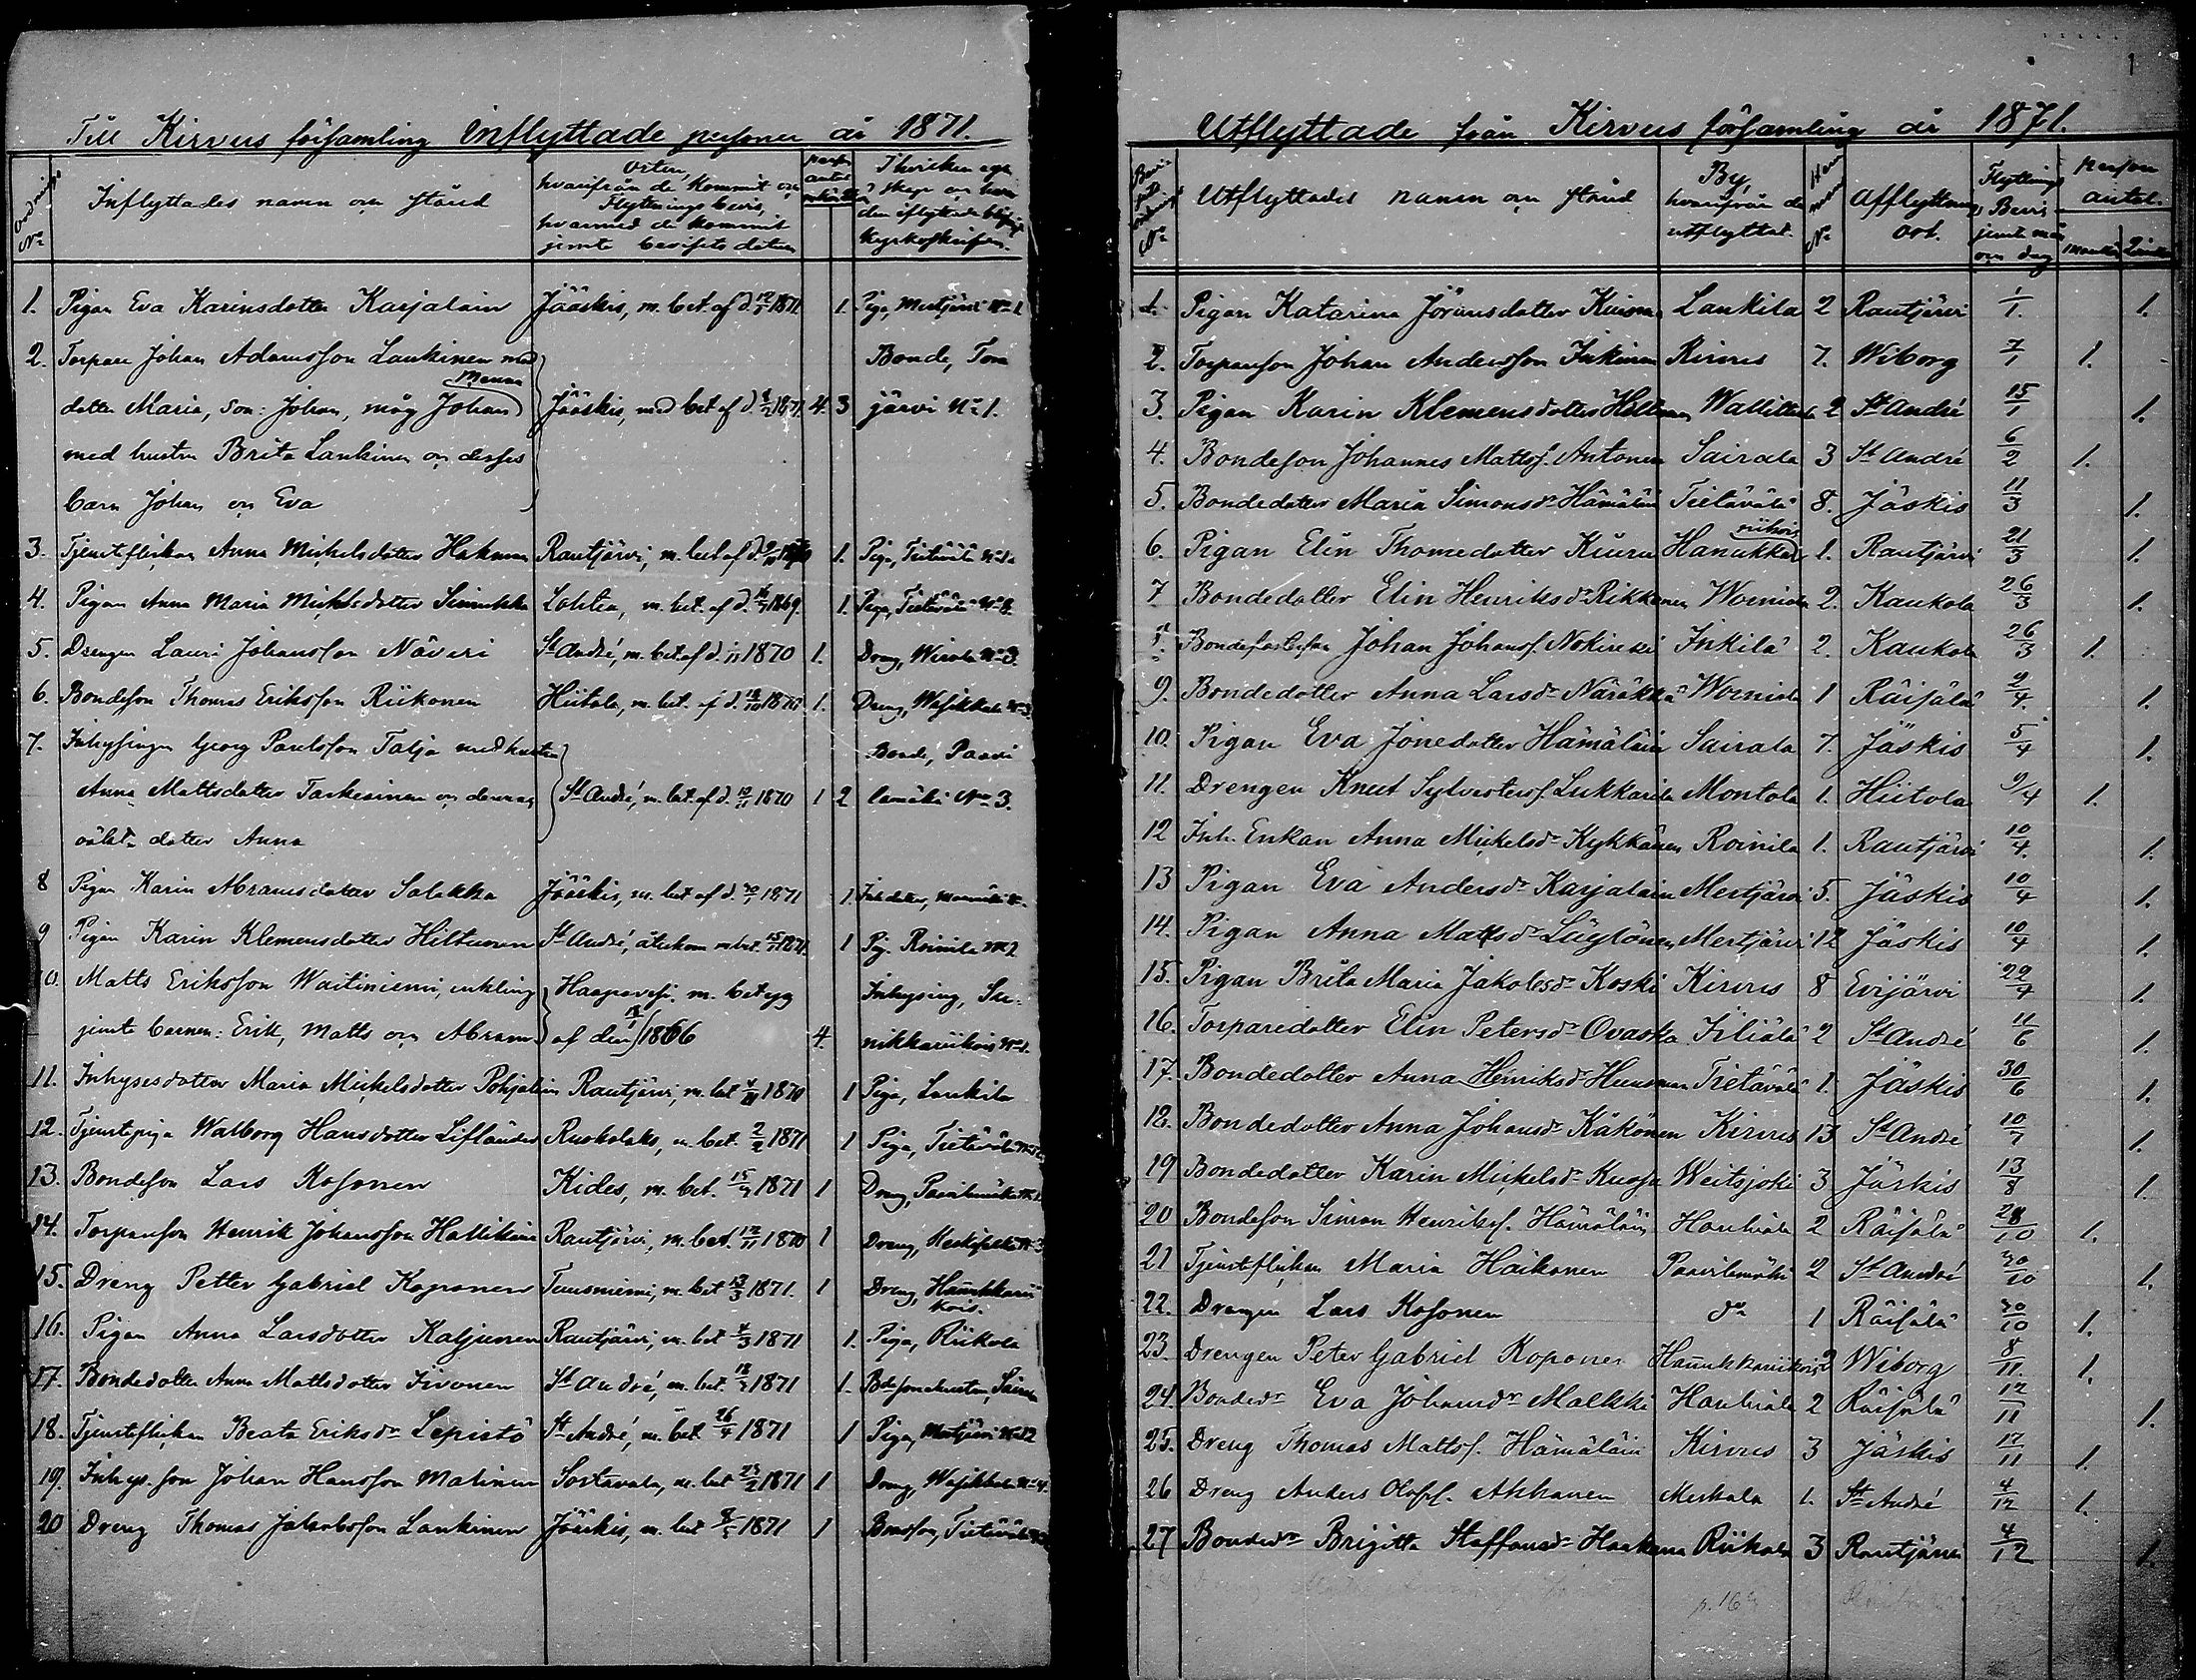 Till Kirvus församling Inflyttade personer år 1871.
Ordnings No
Inflyttades namn och stånd
Orten, hvarifrån de kommit och
Flyttnings bevis,
hvarmed de kommit
jemte bevisets datum
person antal
I hvilken egenskap och hvar den inflyttade blifvit kyrkoskrifven.
1. Pigan Eva Karinsdotter Karjalain Jääskis, m. bet. af d. 12/1 1871. 1. Piga, Mertjärvi No 1.
2. Torpare Johan Adamsson Lankinen med Bonde, Tom
dotter Maria, Son: Johan, måg Johan Manna Jääskis, med bet. af d. 1871. 4. 3 järvi No 1.
med hustru Brita Lankinen och desses
barn Johan och Eva
3. Tjensteflickan Anna Michelsdotter Hakman Rautjärvi, m. bet. af d. 1. Piga, Tietävälä No 1.
4. Pigan Anna Maria Michelsdotter Sinukka Lohtea, m. bet. af d. 1869. 1. Piga, Tietävälä No 8.
5. Drengen Lauri Johansson Näveri St André, m. bet. af d. 1870 1. Dreng, Wirola No 3.
6. Bondeson Thomas Eriksson Riikonen Hiitola, m. bet. af d. 18/10 1870. 1. Dreng, Wasikkala No 3.
7. Inhysingen Georg Paulsson Talja med hustru Bonde, Paavi
Anna Mattsdotter Tarkesinen och dennas St André, m. bet. af d. 10/11 1870 1 2 lamäki No 3.
oäkt. dotter Anna
8 Pigan Karin Abramsdotter Salakka Jääskis, m. bet. af d. 1871 1. Inh.dotter,
9 Pigan Karin Klemensdotter Hiltunen St André, återkom m. bet. 15/1 1871. 1 Pig. Roinila No 2
10. Matts Eriksson Waitiniemi, enkling Haapavesi, m. betyg Inhysing, Sa-
jemte barnen: Erik, Matts och Abram af den 1866 4. nikkariikois No 1.
11. Inhysesdotter Maria Michelsdotter Pohjalain Rautjärvi, m. bet. 1870 1 Piga, Lankila
12. Tjenstepiga Walborg Hansdotter Liflander Ruokolaks, m. bet. 2/2 1871 1 Piga, Tietävälä
13. Bondeson Lars Kosonen Kides, m. bet. 15/4 1871 1 Dreng, Paavilamäki No 1.
14. Torpareson Henrik Johansson Hallikain Rautjärvi, m. bet. 12/11 1870 1 Dreng, No 3
15. Dreng Petter Gabriel Koponen Tuusniemi, m. bet. 13/3 1871. 1 Dreng, Hanukkarii
kois.
16. Pigan Anna Larsdotter Kaljunen Rautjärvi, m. bet. 4/3 1871 1. Piga, Riikola
17. Bondedotter Anna Mattsdotter Iivonen St André, m. bet. 1871 1. Bdesonehustru, Saira
18. Tjensteflickan Beata Eriksdr Lepistö St André, m. bet. 26/4 1871 1 Piga, Mertjärvi No 12
19. Inhys. son Johan Hansson Matinen Sortavala, m. bet. 23/2 1871 1 Dreng, Wasikkala No 4.
20 Dreng Thomas Jakobsson Lankinen Jääskis, m. bet. 1871 1 Bondson, Tietävälä
Utflyttade från Kirvus församling år 1871.
1
Utflyttades namn och stånd
By, hvarifrån de utflyttat.
Hemman No
Afflyttnings ort.
Flyttnings Bevis jemte mån. och dag
person antal.
mankön Qvinkön
1. Pigan Katarina Jöransdotter Kuisma Lankila 2 Rautjärvi 1/1. 1.
2. Torpareson Johan Andersson Inkinen Kirvus 7. Wiborg 7/1 1.
3. Pigan Karin Klemensdotter Hiltunen Wallittula 2 St André 15/1 1.
4. Bondeson Johannes Mattss. Antonen Sairala 3 St André 6/2 1.
5. Bondedotter Maria Simonsdr Hämäläin Tietävälä 8. Jäskis 11/3 1.
6. Pigan Elin Thomedotter Kiuru Hanukkariikois 1. Rautjärvi 21/3 1.
7 Bondedotter Elin Henriksdr Rikkonen Worniola 2. Kaukola 26/3 1.
8. Johan Johanss. Nokireki Inkilä 2. Kaukola 26/3 1.
9. Bondedotter Anna Larsdr Näräkkä Worniola 1 Räisälä 2/4. 1.
10. Pigan Eva Jonedotter Hämäläin Sairala 7. Jäskis 5/4 1.
11. Drengen Knut Sylvesterss. Lukkarila Montola 1. Hiitola 9/4 1.
12 Inh. Enkan Anna Mickelsdr Kykkänen Roinila 1. Rautjärvi 10/4. 1.
13 Pigan Eva Andersdr Karjalain Mertjärvi 5. Jäskis 10/4 1.
14. Pigan Anna Mattsdr Löytönen Mertjärvi 12 Jäskis 10/4 1.
15. Pigan Brita Maria Jakobsdr Koski Kirvus 8 Evijärvi 29/4 1.
16. Torparedotter Elin Petersdr Ovaska Iiliälä 2 St André 11/6 1.
17. Bondedotter Anna Henriksdr Huusman Tietävälä 1. Jäskis 30/6 1.
18. Bondedotter Anna Johansdr Käkönen Kirvus 13 St André 10/7 1.
19 Bondedotter Karin Mickelsdr Kuosa Weitsjoki 3 Jäskis 13/8 1.
20 Bondeson Simon Henrikss. Hämäläin Hauhiala 2 Räisälä 28/10 1.
21 Tjensteflickan Maria Haikonen Paavilamäki 2 St André 30/10 1.
22. Drengen Lars Kosonen do 1 Räisälä 30/10 1.
23. Drengen Peter Gabriel Koponen Hanukkariikois 2 Wiborg 8/11. 1.
24. Bondedr Eva Johansdr Malkki Hauhiala 2 Räisälä 12/11 1.
25. Dreng Thomas Mattss. Hämäläin Kirvus 3 Jäskis 17/11 1.
26 Dreng Anders Olofss. Ahkanen Merkala 1. St André 4/12 1.
27 Bondedr Brigitta Staffansdr Haakana Riikola 3 Rautjärvi 4/12 1.